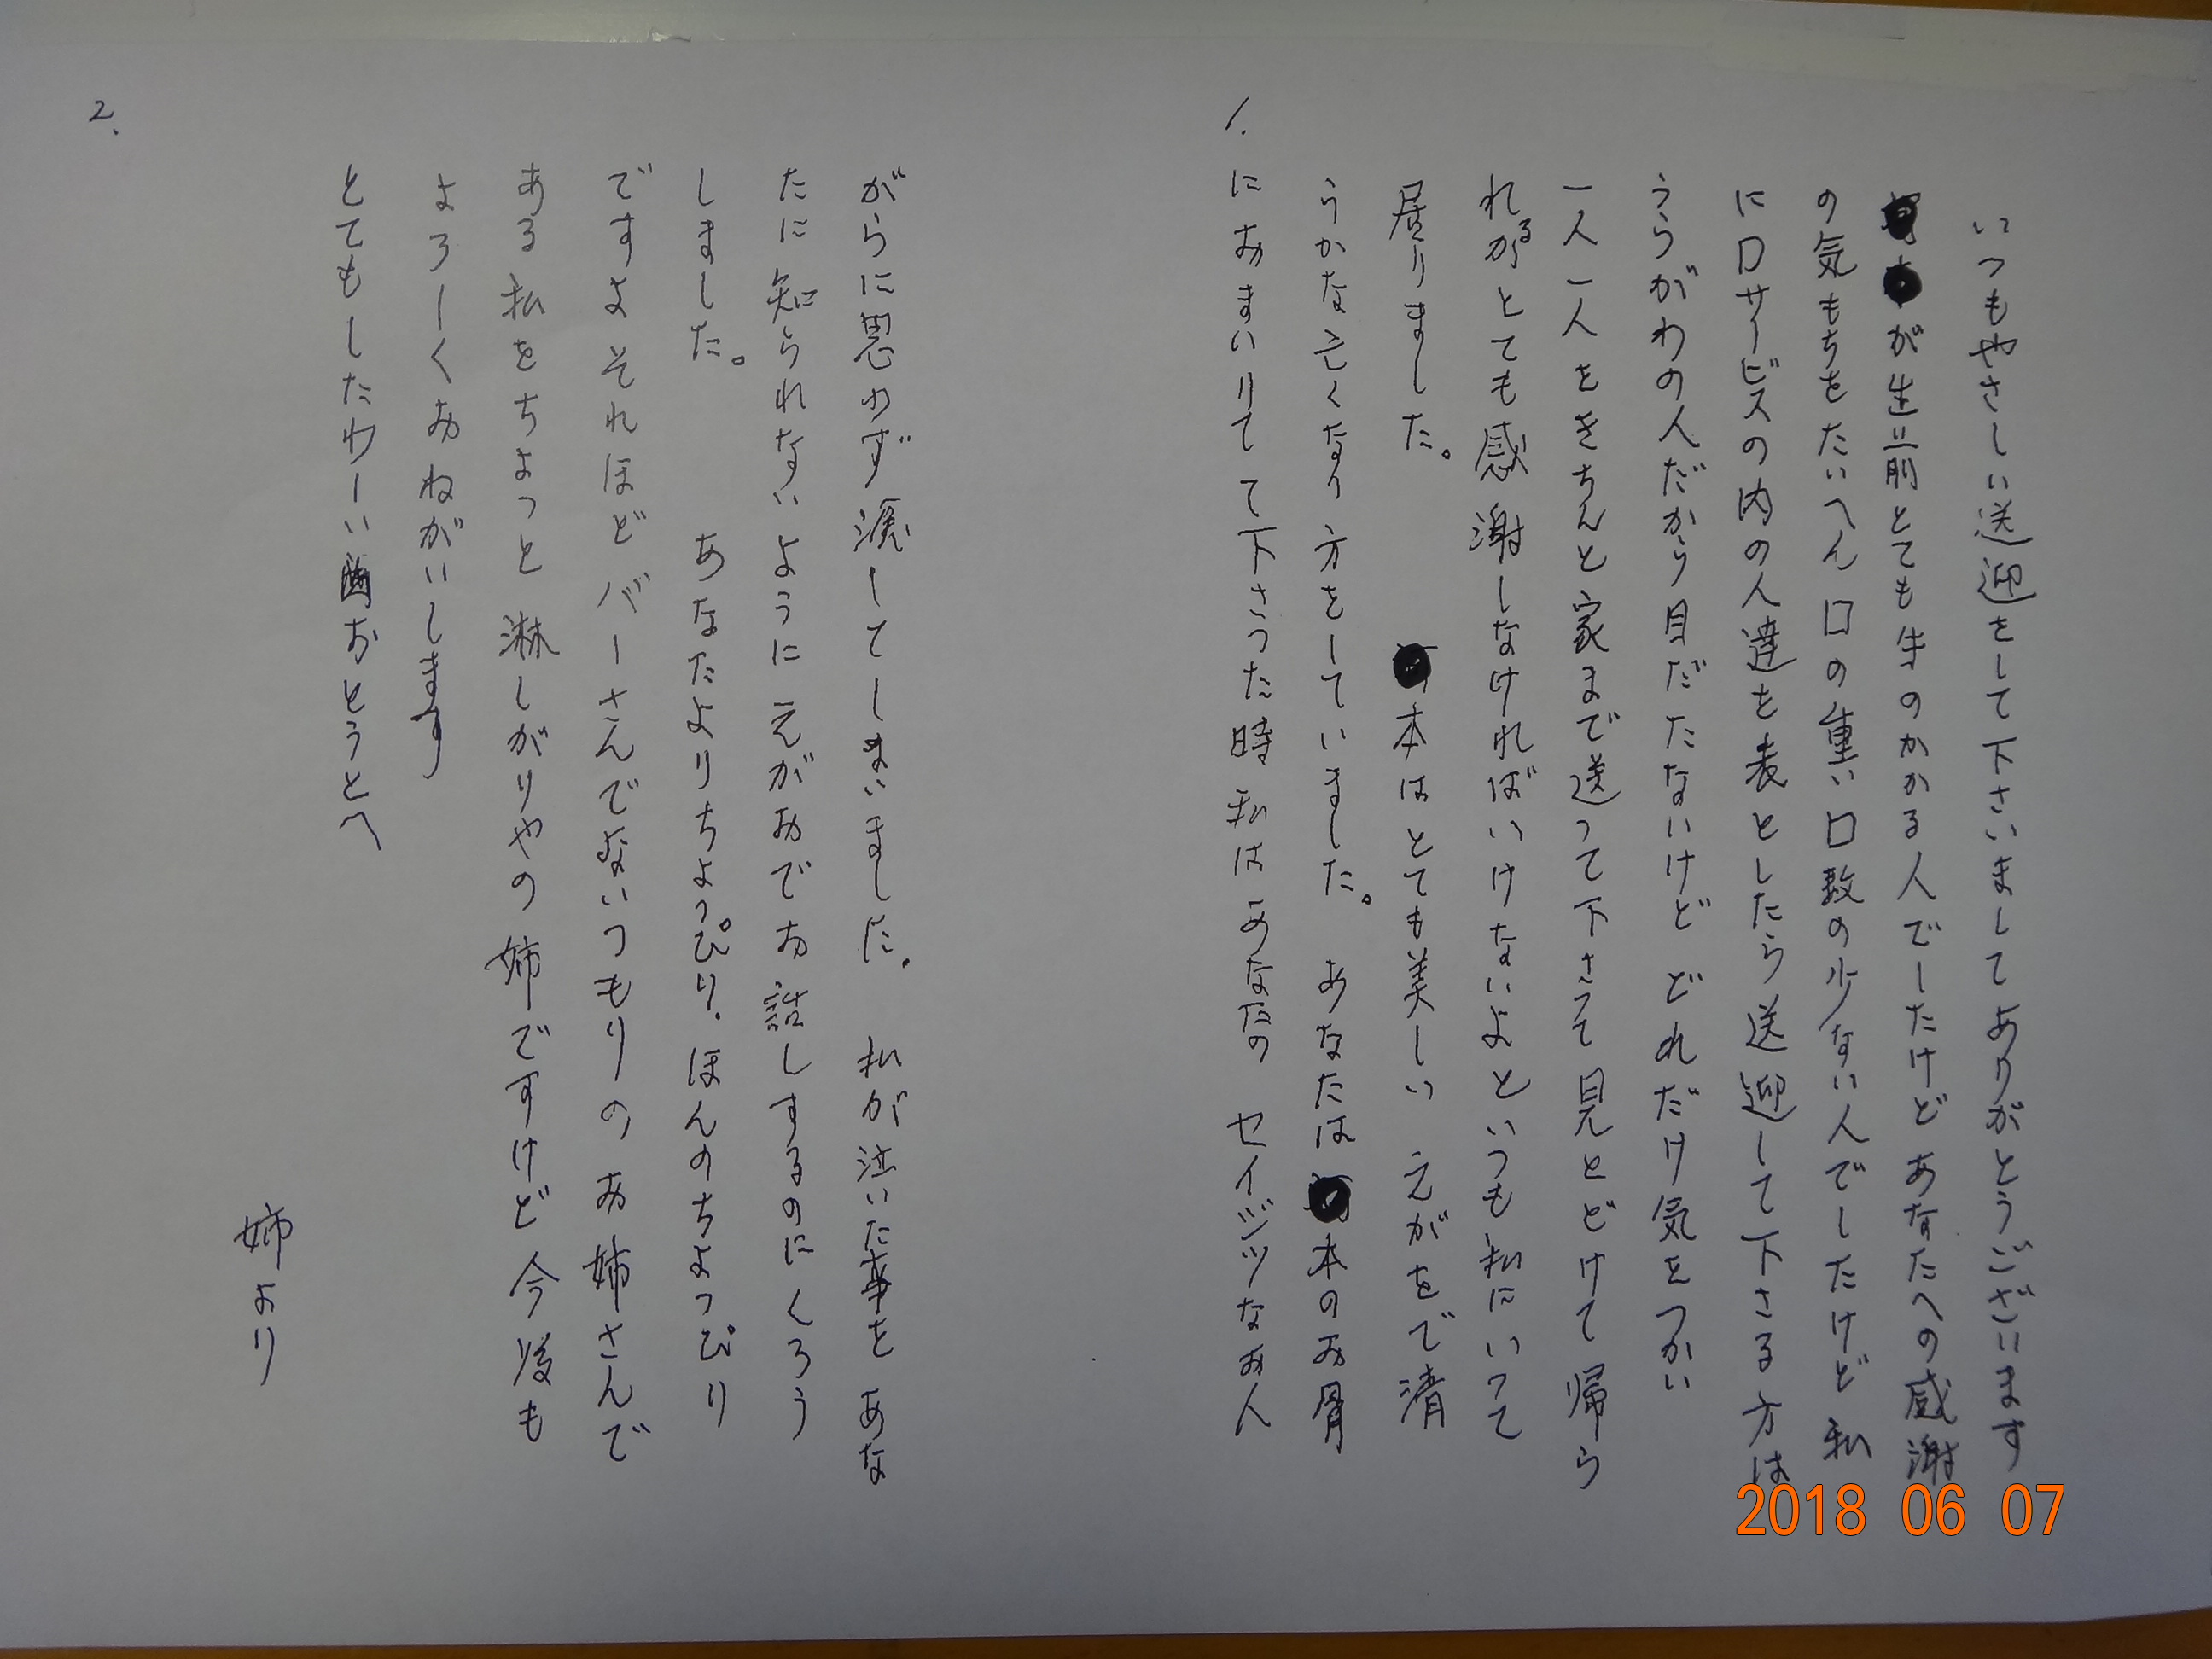 いつもやさしい送迎をして下さいましてありがとうございます
が生前とても手のかかる人でしたけどあなたへの感謝
の気もちをたいへん口の重い口数の少ない人でしたけど私
に口サービスの内の人達を表としたら送迎して下さる方は
うらがわの人だから目だたないけどどれだけ気をつかい
一人一人をきちんと家まで送って下さって見とどけて帰ら
れるがとても感謝しなければいけないよといつも私にいって
居りました。 本はとても美しいえがをで清
らかな亡くなり方をしていました。あなたは本のお骨
におまいりてて下さった時私はあなたの セイジツなお人
1.
がらに思わず涙してしまいました。私が泣いた事をあな
たに知られないようにえがおでお話しするのにくろう
しました。 あなたよりちょっぴり.ほんのちょっぴり
ですよそれほどバーさんでないつもりのお姉さんで
ある私をちょっと淋しがりやの姉ですけど今後も
よろしくおねがいします
とてもしたわーいおとうとへ
姉より
2.
2018 06 07